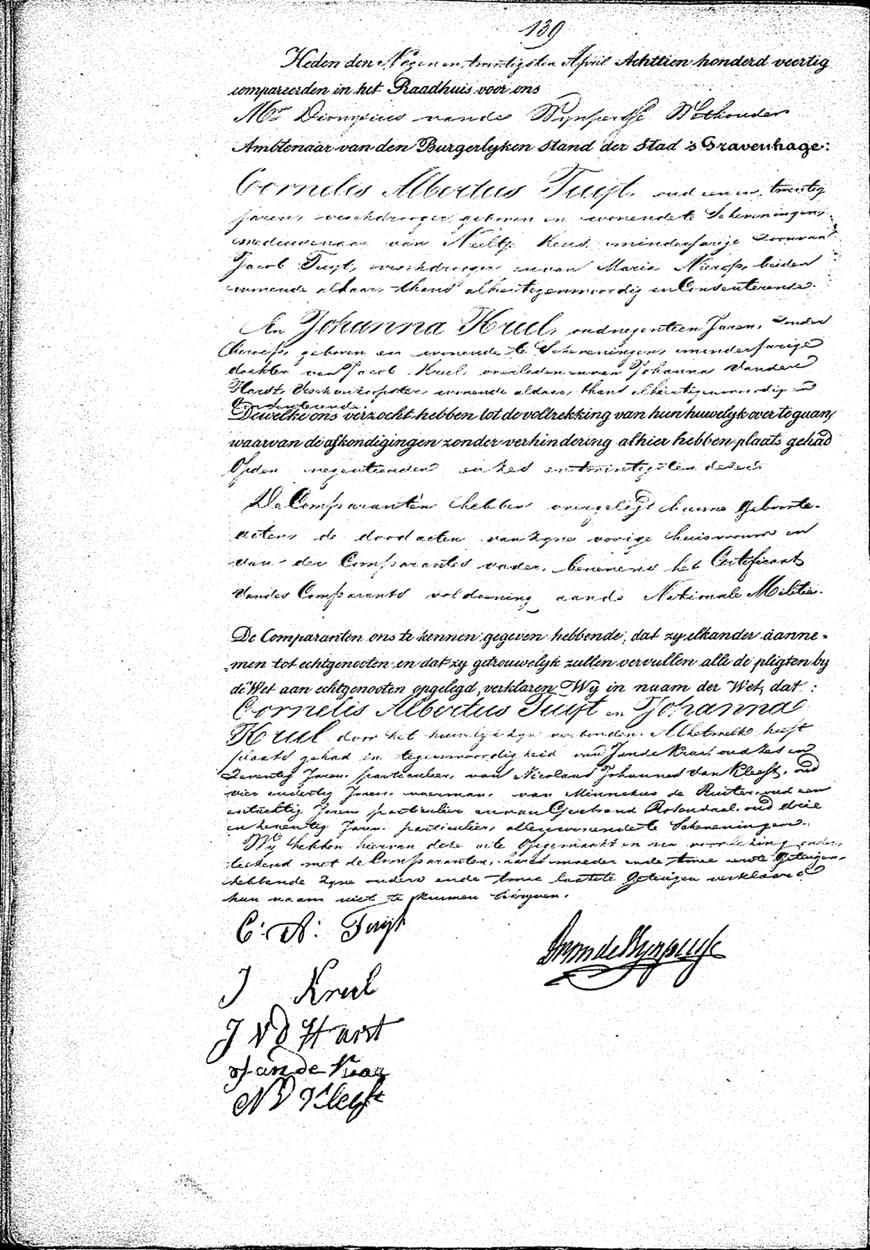 139
Heden den Negen en twintigsten April Achttien honderd veertig
compareerden in het Raadhuis voor ons
Mr. Dionysius van de Wijnpersse Wethouder
Ambtenaar van den Burgerlyken Stand der Stad 's Gravenhage:
Cornelis Albertus Tuijt, oud een en twintig
jaren, vischdrooger, geboren en wonende te Scheveningen,
weduwenaar van Neeltje minderjarige zoon van
Jacob Tuijt, vischdrooger en van Maria Nierop, beiden
wonende aldaar, thans alhier tegenwoordig en Consenterende.
En Johanna Krul, oud negentien Jaren, zonder
beroep, geboren en wonende te Scheveningen, minderjarige
dochter van Jacob Krul, overleden en van Johanna van der
Hardt, Vischverkoopster, wonende aldaar, thans alhier tegenwoordig en
Consenterende.
Dewelke ons verzocht hebben tot de voltrekking van hun huwelyk over te gaan,
waarvan de afkondigingen zonder verhindering alhier hebben plaats gehad
Op den negentienden en zes en twintigsten dezer.
De Comparanten hebben overgelegd hunne geboorte-
acten, de doodacten van zyne vorige huisvrouw en
van der Comparantes vader, benevens het Certificaat
van des Comparants voldoening aan de Nationale Militie.
De Comparanten ons te kennen gegeven hebbende, dat zy elkander aanne-
men tot echtgenooten en dat zy getrouwelyk zullen vervullen alle de pligten by
de Wet aan echtgenooten opgelegd, verklaren Wy in naam der Wet, dat:
Cornelis Albertus Tuijt en Johanna
Krul door het huwelijk zyn verbonden. Al hetwelk heeft
plaats gehad in tegenwoordigheid van J van de Kraa, oud zes en
zeventig Jaren, particulier, van Nicolaas Johannes van Kleeft, oud
vier en dertig Jaren, voerman, van Minnekus de Ruiter, oud een
en tachtig Jaren particulier en van Gerbrand Rotendaal, oud drie
en zeventig Jaren, particulier, allen wonende te Scheveningen.
Wy hebben hiervan deze acte Opgemaakt en na voorlezing onder-
teekend met de Comparanten, hare moeder en de twee eerste Getuigen,
hebbende zyne ouders en de twee laatste Getuigen verklaard
hun naam niet te kunnen schryven.
C: A: Tuijt
J Krul
J V d Hart
J van de Kraa
N V Kleeft